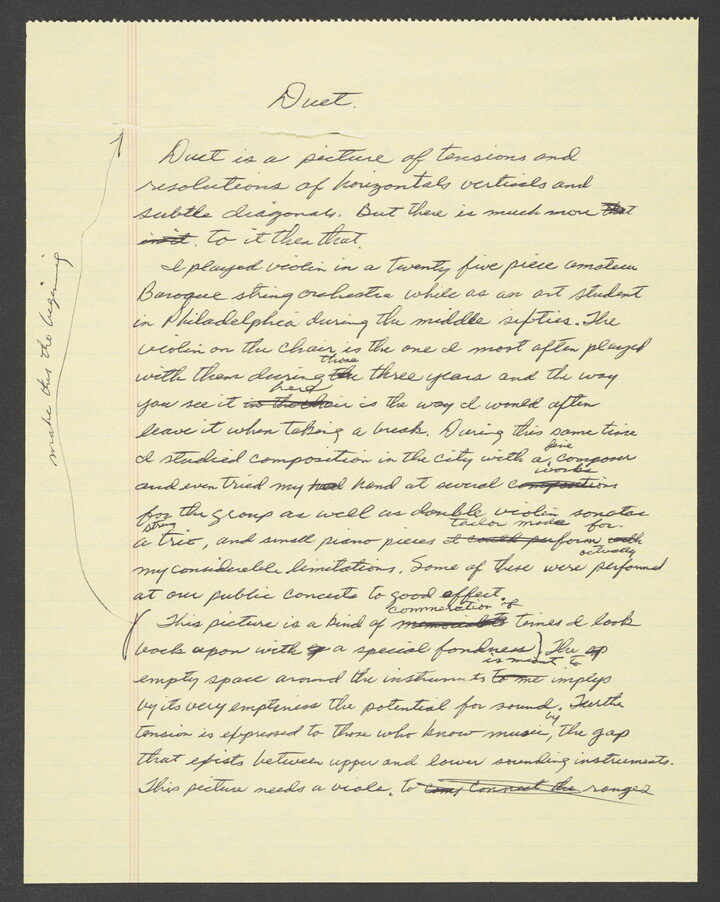 Duet.
Duet is a picture of tensions and
resolutions of horizontals verticals and
subtle diagonals. But there is much more that
in it. to it then that.
I played violin in a twenty five piece amateur
Baroque string orchestra while as an art student
in Philadelphia during the middle sixties. The
violin on the chair is the one I most often played
those
with them during the three years and the way
here
you see it in the chair is the way I would often
leave it when taking a break. During this same time
fine
I studied composition in the city with a composer
works
and even tried my had hand at several compositions
for the group as well as double violin sonatas
string
tailor made for
a trio, and small piano pieces I could perform with
actually
my considerable limitations. Some of these were performed
at our public concerts to good effect.
commeration of
This picture is a kind of times I look
back upon with a special fondness) The
is meant to
empty space around the instruments to me implys
by its very emptiness the potential for sound. Further
by
tension is expressed to those who know music, the gap
that exists between upper and lower sounding instruments.
This picture needs a viola. to connect the ranges
make this the begining